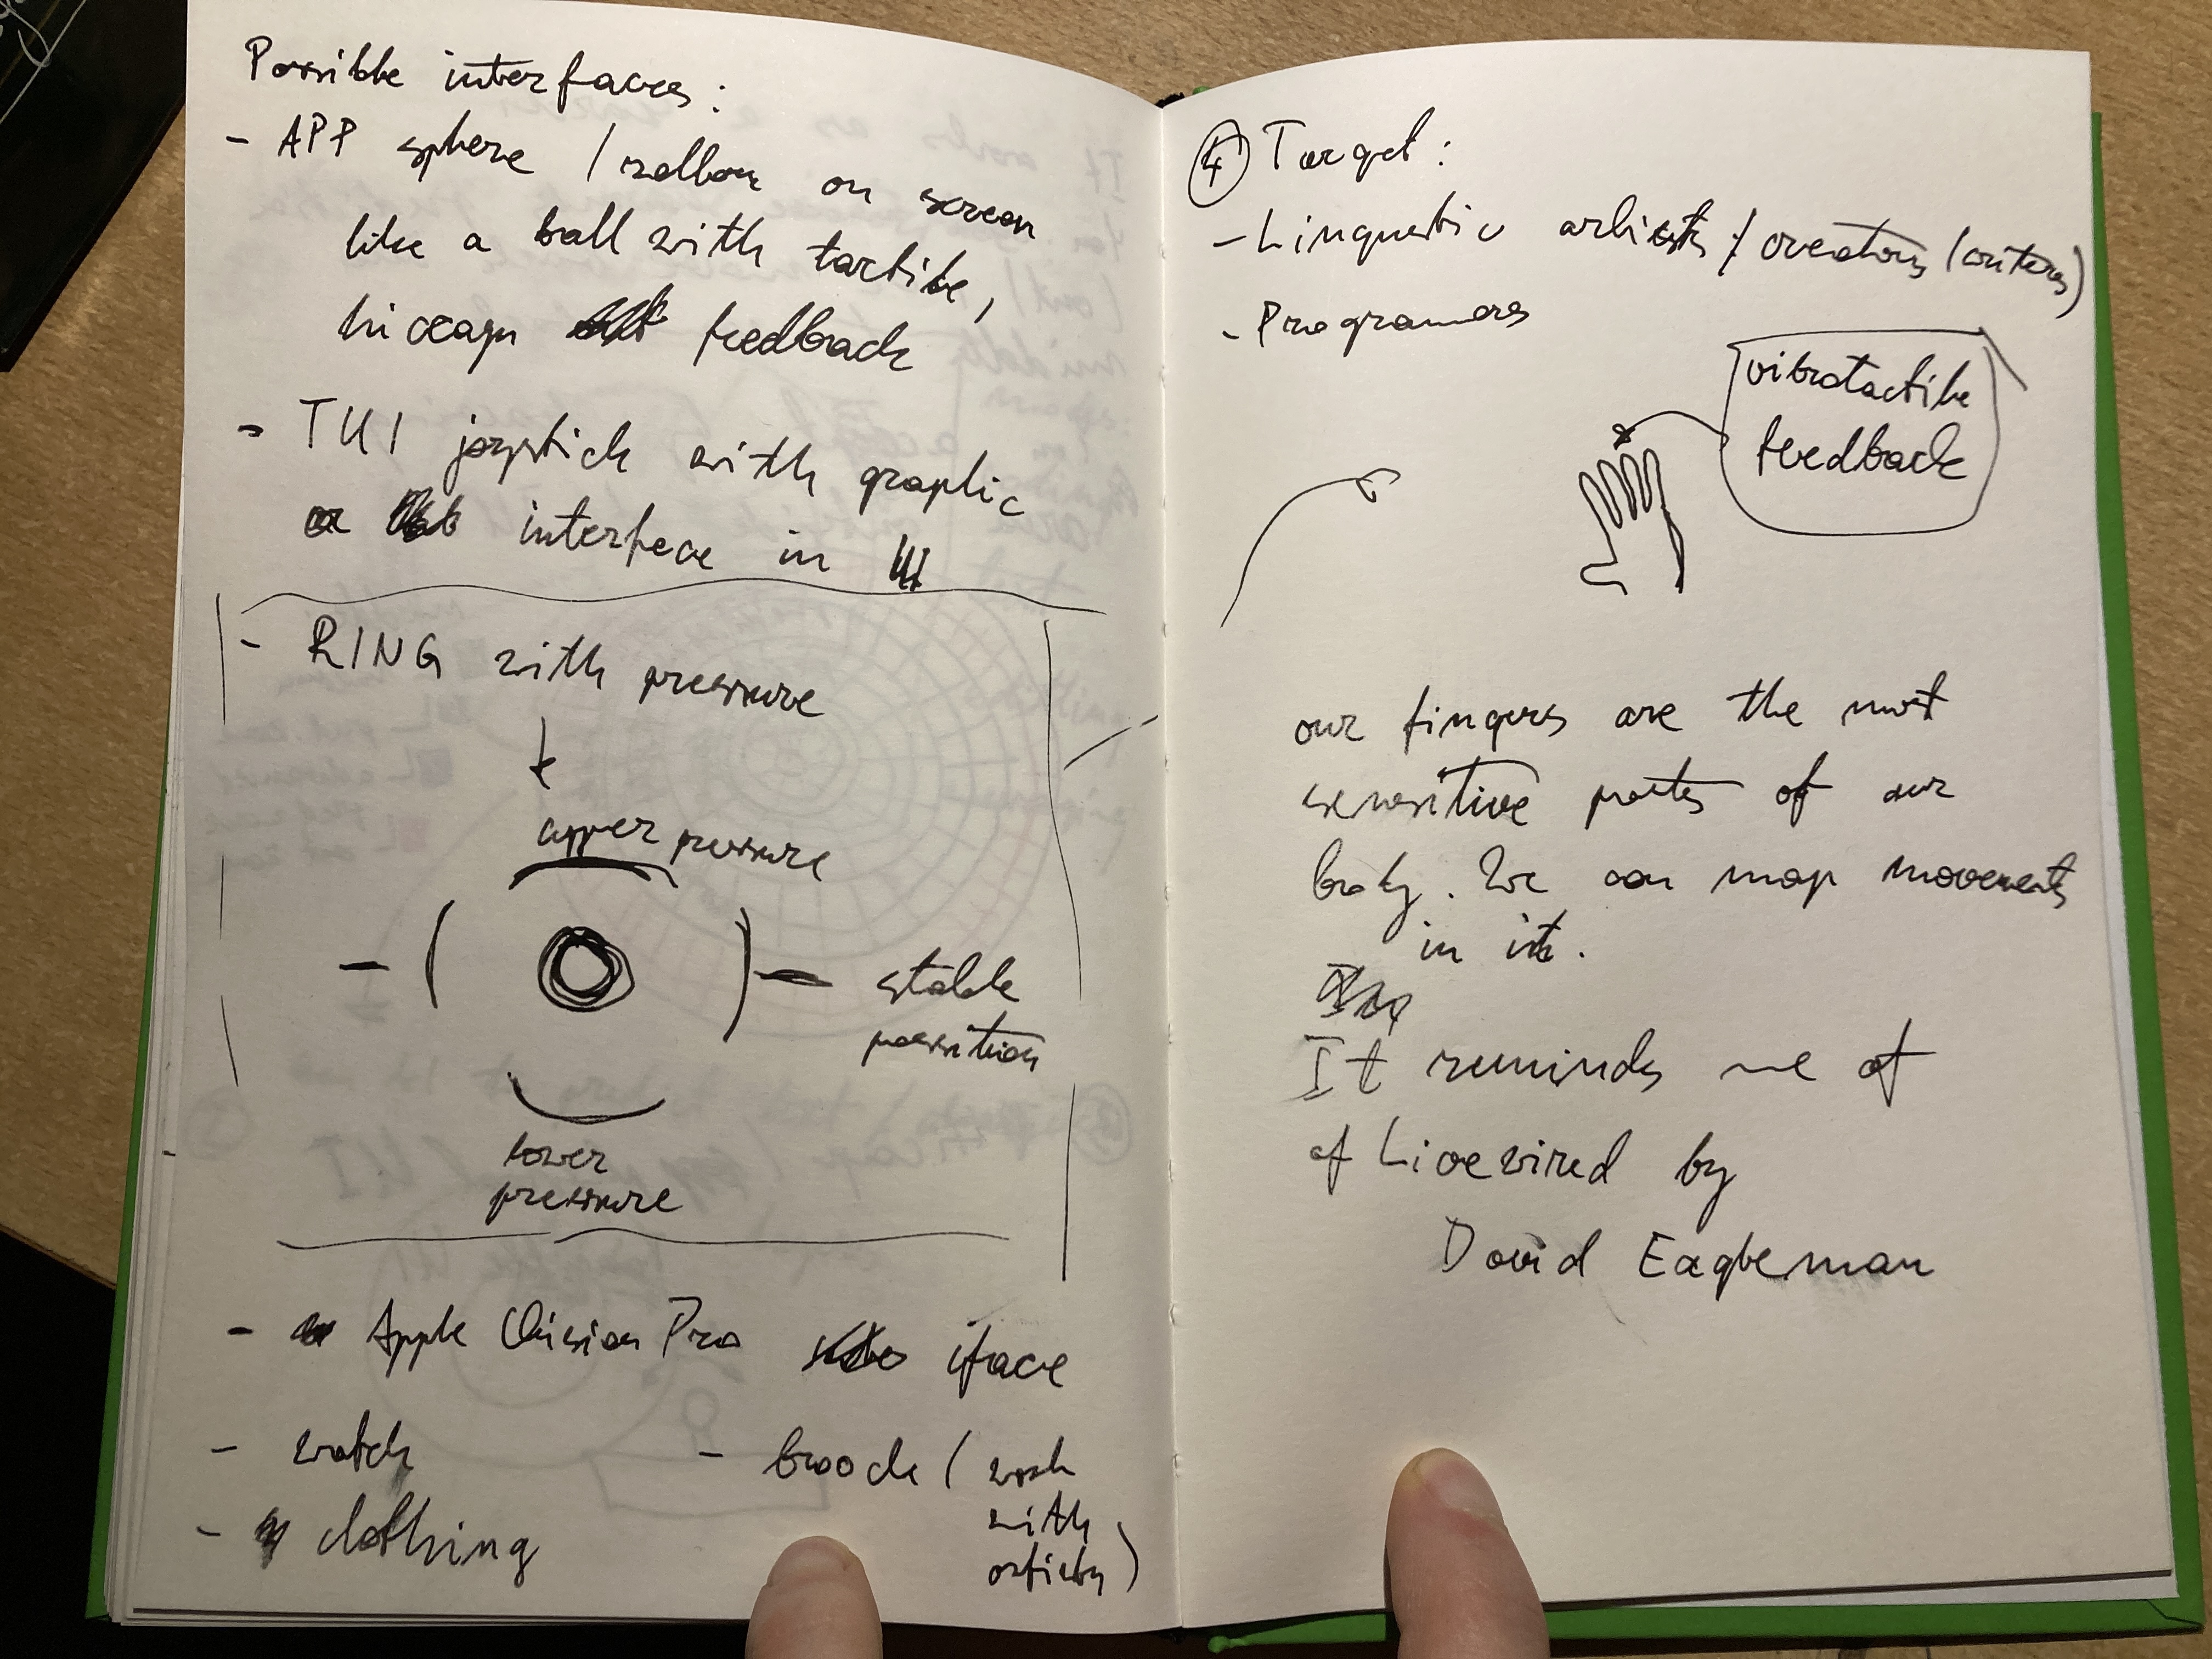 Possible interfaces:
- APP sphere / on screen
like a ball with tactile,
feedback
- TUI joystick with graphic
interface in
- RING with pressure
upper pressure
stable
possition
lower
pressure
- Apple Vision Pro iface
- watch
- brooch (work
with
artists)
- clothing
4 Target:
- Linguistic artists / creators (writers)
- Programmers
vibrotactile
feedback
our fingers are the most
sensitive parts of our
body. We can map movements
in it.
It reminds me of
of Livewired by
David Eagleman